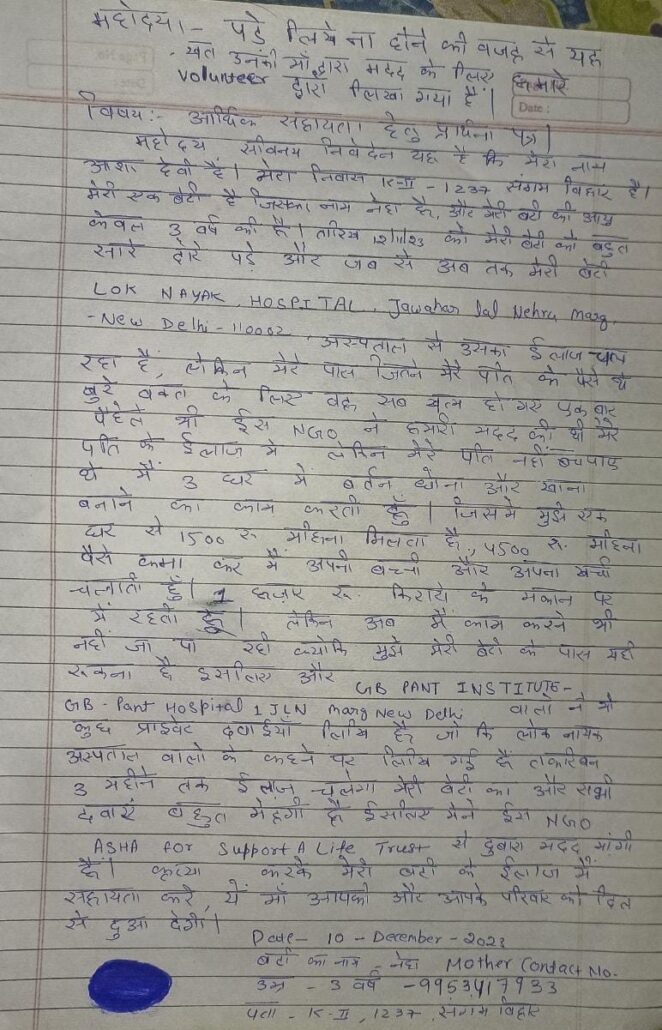 महोदया - पढे लिखे ना होने की वजह से यह
खत उनकी माँ द्वारा मदद के लिए हमारे
volunteer द्वारा लिखा गया है।
Date:
विषय:- आर्थिक सहायता हेतु प्रार्थना पत्र।
महोदय सविनय निवेदन यह है कि मेरा नाम
आशा देवी है। मेरा निवास K-II - 1237 संगम विहार है।
मेरी एक बेटी है जिसका नाम नेहा है, और मेरी बेटी की आयु
केवल 3 वर्ष की है। तारिख 12/11/23 को मेरी बेटी को बहुत
सारे दौरे पड़े और जब से अब तक मेरी बेटी
LOK NAYAK, HOSPITAL, Jawahar lal Nehru marg,
-New Delhi-110002, अस्पताल से उसका ईलाज चल
रहा है, लेकिन मेरे पास जितने मेरे पति के पैसे थे
बुरे वक्त के लिए वह सब खत्म हो गए एक बार
पहेले भी ईस NGO ने हमारी मदद की थी मेरे
पति के ईलाज मे लेकिन मेरे पति नहीं बचपाए
थे मैं 3 घर में बर्तन धोना और खाना
बनाने का काम करती हुँ। जिसमे मुझे एक
घर से 1500 रू महिना मिलता है, 4500 रू महिना
पैसे कमा कर मैं अपनी बच्ची और अपना खर्चा
चलाती हुँ। हजार रू किराये के मकान पर
में रहती हुँ। लेकिन अब मैं काम करने भी
नहीं जा पा रही क्योकि मुझे मेरी बेटी के पास यही
रूकना है इसीलिए और GB PANT INSTITUTE-
GB-Pant Hospital 1 JLN marg New Delhi वालो ने भी
कुछ प्राइवेट दवाईयाँ लिखि है, जो कि लोक नायक
अस्पताल वालो के कहने पर लिखि गई है तकरिबन
3 महीने तक ईलाज चलेगा मेरी बेटी का और सभी
दवाएं बहुत मेहंगी है ईसीलिए मैने ईस NGO
ASHA for Support A Life Trust से दुबारा मदद मांगी
है। कृप्या करके मेरी बेटी के ईलाज में
सहायता करे, ये माँ आपको और आपके परिवार को दिल
से दुआ देगी।
Date- 10 - December - 2023
बेटी का नाम - नेहा Mother Contact No.
उम्र - 3 वर्ष - 9953417933
पता - K-II, 1237, संगम विहार